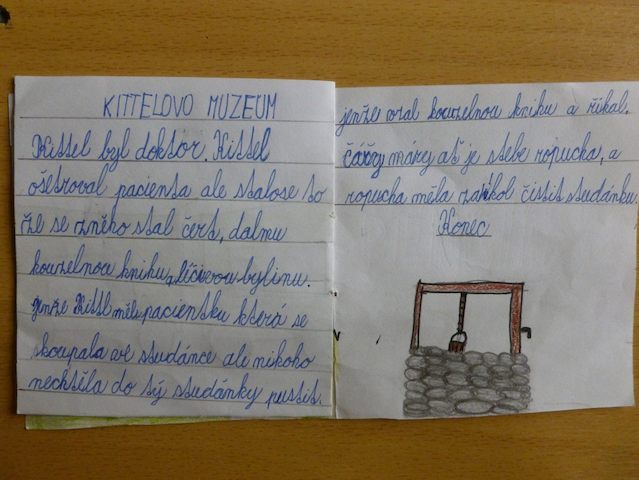 KITTELOVO MUZEUM
Kittel byl doktor. Kittel
ošetroval pacienta ale stalose to
že se zněho stal čert, dalmu
kouzelnou knihu a léčivou bylinu.
Jenže Kittl měl pacientku která se
skoupala ve studánce ale nikoho
nechtěla do tý studánky pustit.
jenže vzal kouzelnou knihu a říkal,
čáry máry ať je stebe ropucha, a
ropucha měla za úkol čistit studánku.
Konec